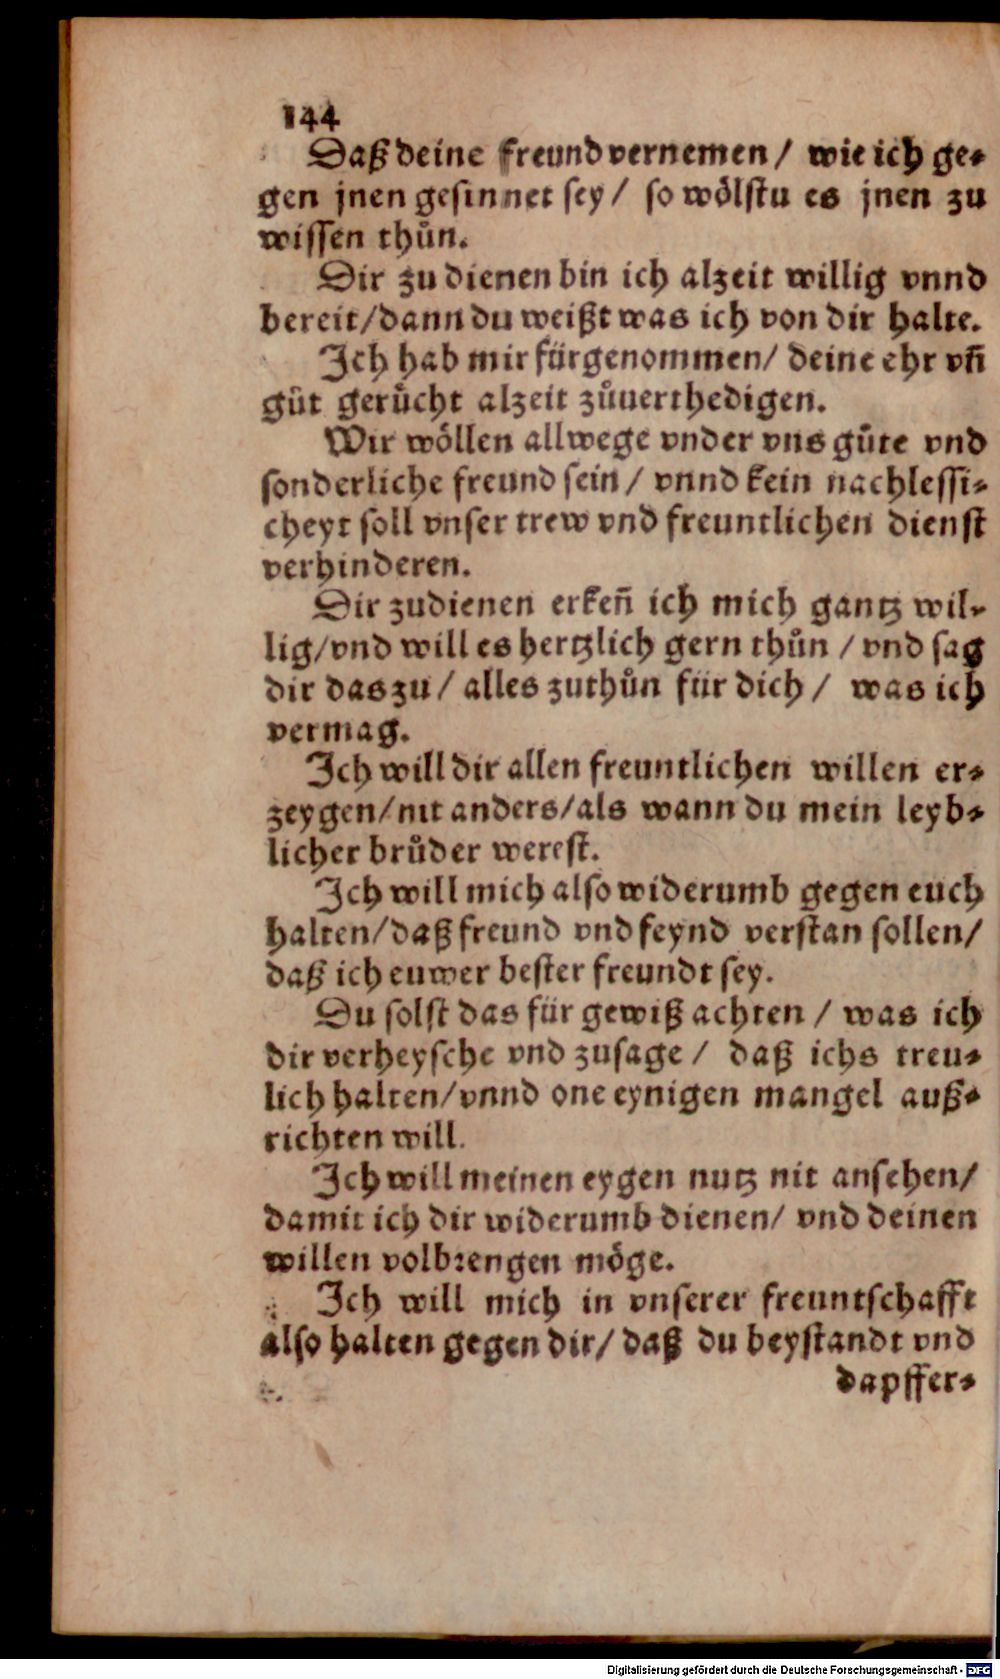 144
Daß deine freund vernemen / wie ich ge-
gen jnen gesinnet sey / so wölstu es jnen zu
wissen thůn.
Dir zu dienen bin ich alzeit willig vnnd
bereit / dann du weißt was ich von dir halte.
Ich hab mir fürgenommen / deine ehr vñ
gůt gerůcht alzeit zůuerthedigen.
Wir wöllen allwege vnder vns gůte vnd
sonderliche freund sein / vnnd kein nachlessi-
cheyt soll vnser trew vnd freuntlichen dienst
verhinderen.
Dir zudienen erkeñ ich mich gantz wil-
lig / vnd will es hertzlich gern thůn / vnd sag
dir das zu / alles zuthůn für dich / was ich
vermag.
Ich will dir allen freuntlichen willen er-
zeygen / nit anders / als wann du mein leyb-
licher brůder werest.
Ich will mich also widerumb gegen euch
halten / daß freund vnd feynd verstan sollen /
daß ich euwer bester freundt sey.
Du solst das für gewiß achten / was ich
dir verheysche vnd zusage / daß ichs treu-
lich halten / vnnd one eynigen mangel auß-
richten will.
Ich will meinen eygen nutz nit ansehen /
damit ich dir widerumb dienen / vnd deinen
willen volbrengen möge.
Ich will mich in vnserer freuntschafft
also halten gegen dir / daß du beystandt vnd
dapffer-
Digitalisierung gefördert durch die Deutsche Forschungsgemeinschaft - DFG